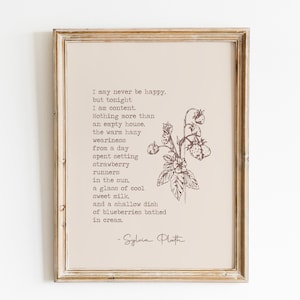 I may never be happy,
but tonight
I am content.
Nothing more than
an empty house,
the warm hazy
weariness
from a day
spent setting
strawberry
runners
in the sun,
a glass of cool
sweet milk,
and a shallow dish
of blueberries bathed
in cream.
- Sylvia Plath